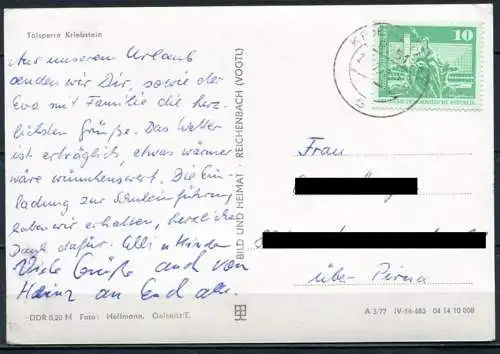 Talsperre Kriebstein
Aus unserem Urlaub
senden wir Dir, sowie der
Eva mit Familie die herz-
lichsten Grüße. Das Wetter
ist erträglich, etwas wärmer
wäre wünschenswert. Die Ein-
ladung zur Schuleinführung
haben wir erhalten, herzlichen
Dank dafür. Elli u Kinder
Viele Grüße auch von
Heinz an Euch alle.
DDR 0,20 M Foto: Hoffmann, Oelsnitz/E.
BILD UND HEIMAT REICHENBACH (VOGTL)
10
DEUTSCHE DEMOKRATISCHE REPUBLIK
Frau
über Pirna
A 3/77 IV-14-483 04 14 10 008